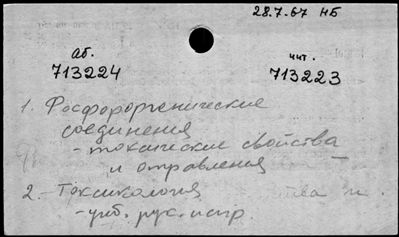 28.7.67 НБ
аб. чит.
713224 713223
1. Фосфорорганические
соединения
- токсические свойства
и отравления
2. - Токсикология
- учеб. рук.